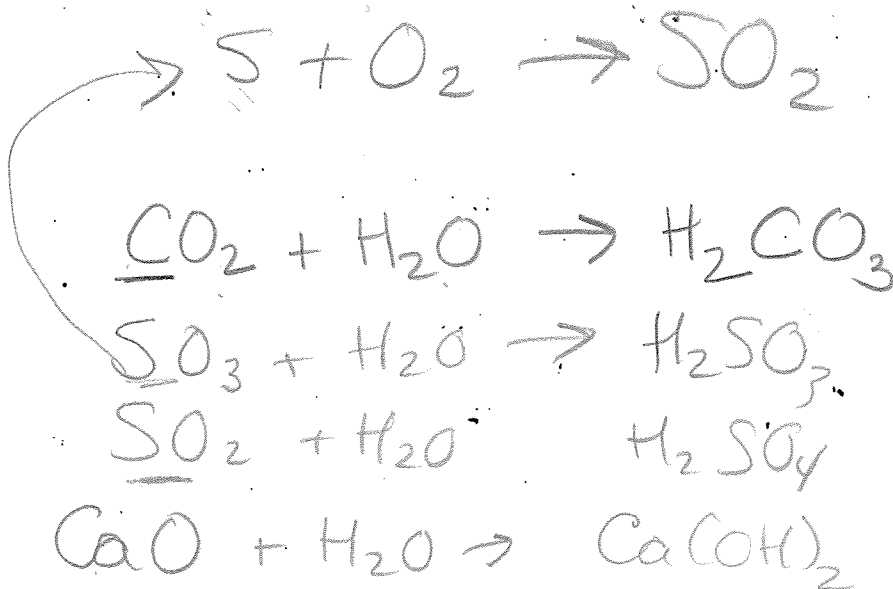 S + O₂ → SO₂
CO₂ + H₂O → H₂CO₃
SO₃ + H₂O → H₂SO₃
SO₂ + H₂O H₂SO₄
CaO + H₂O → Ca(OH)₂